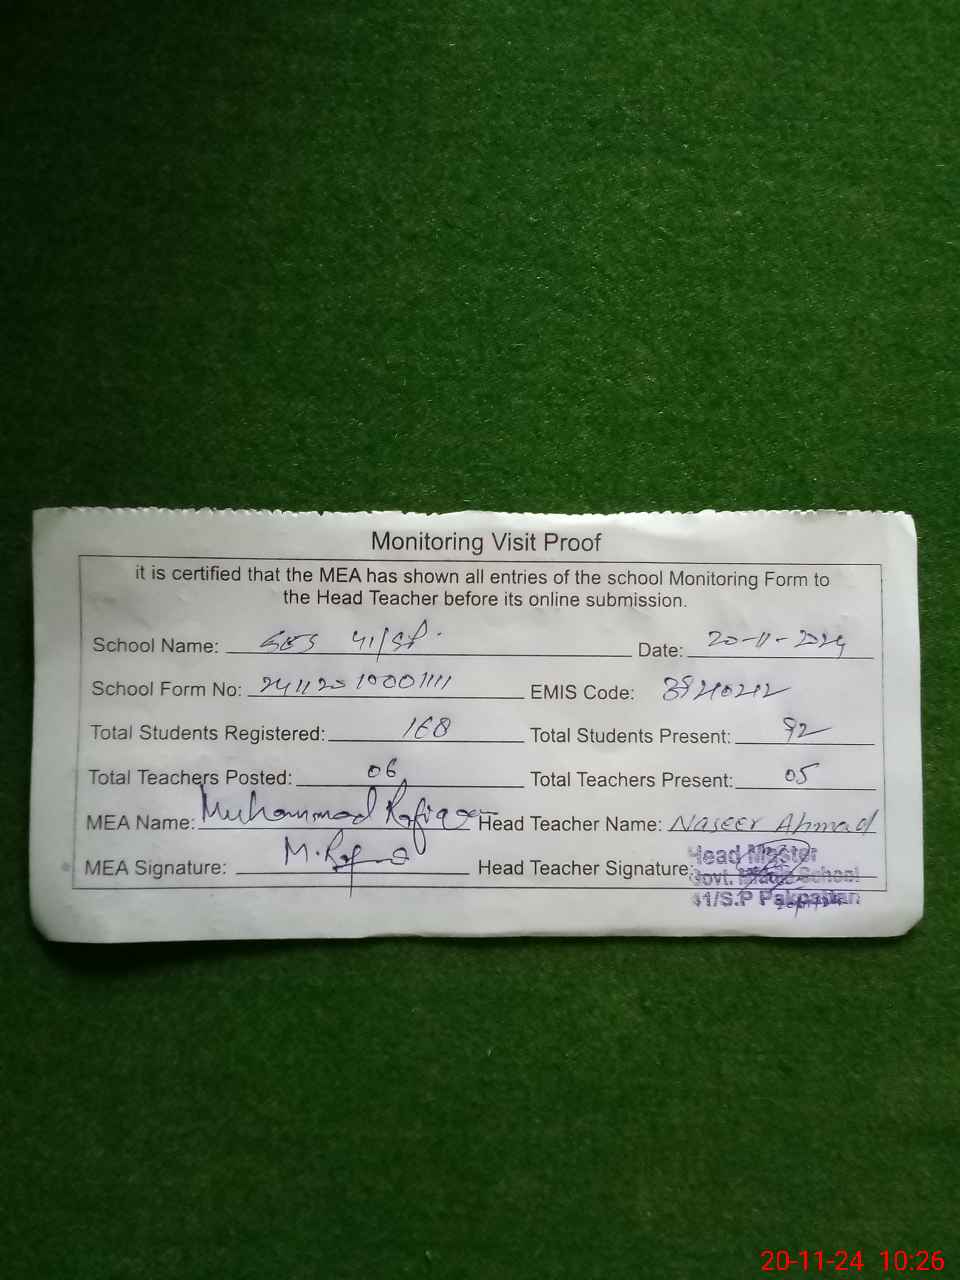 Monitoring Visit Proof
it is certified that the MEA has shown all entries of the school Monitoring Form to
the Head Teacher before its online submission.
School Name: 41/SP. Date: 20-11-2024
School Form No: EMIS Code:
Total Students Registered: 168 Total Students Present: 92
Total Teachers Posted: 06 Total Teachers Present: 05
MEA Name: Muhammad Rafiq Head Teacher Name: Naseer Ahmad
MEA Signature: M. Rafiq Head Teacher Signature:
Head Master
Govt. Middle School
41/S.P Pakpattan
20-11-24 10:26